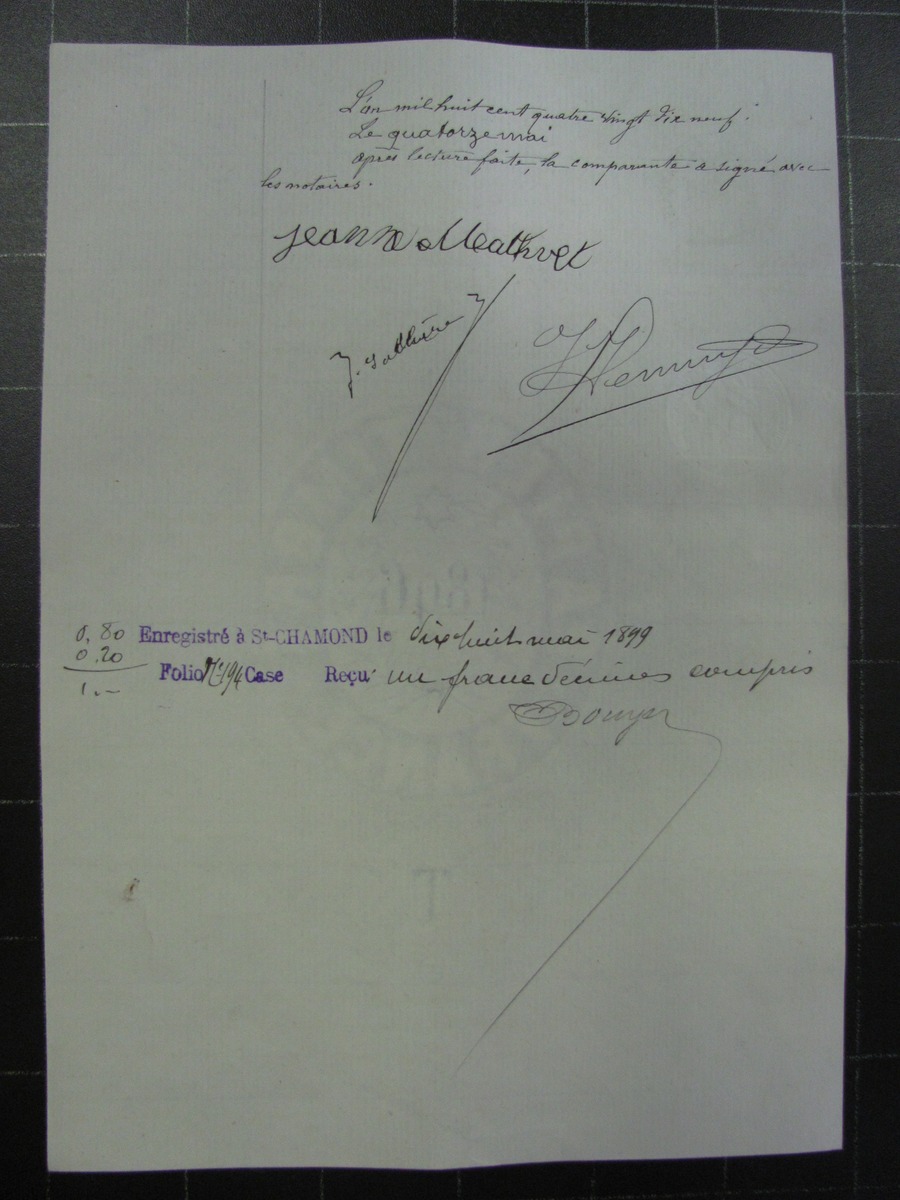 L'an mil huit cent quatre vingt dix neuf.
Le quatorze mai
après lecture faite, la comparante a signé avec
les notaires.
Jeanne Mathvet
0,80 Enregistré à St-CHAMOND le dix huit mai 1899
0,20
Folio Case Reçu un franc décimes compris
1.-
1896
T